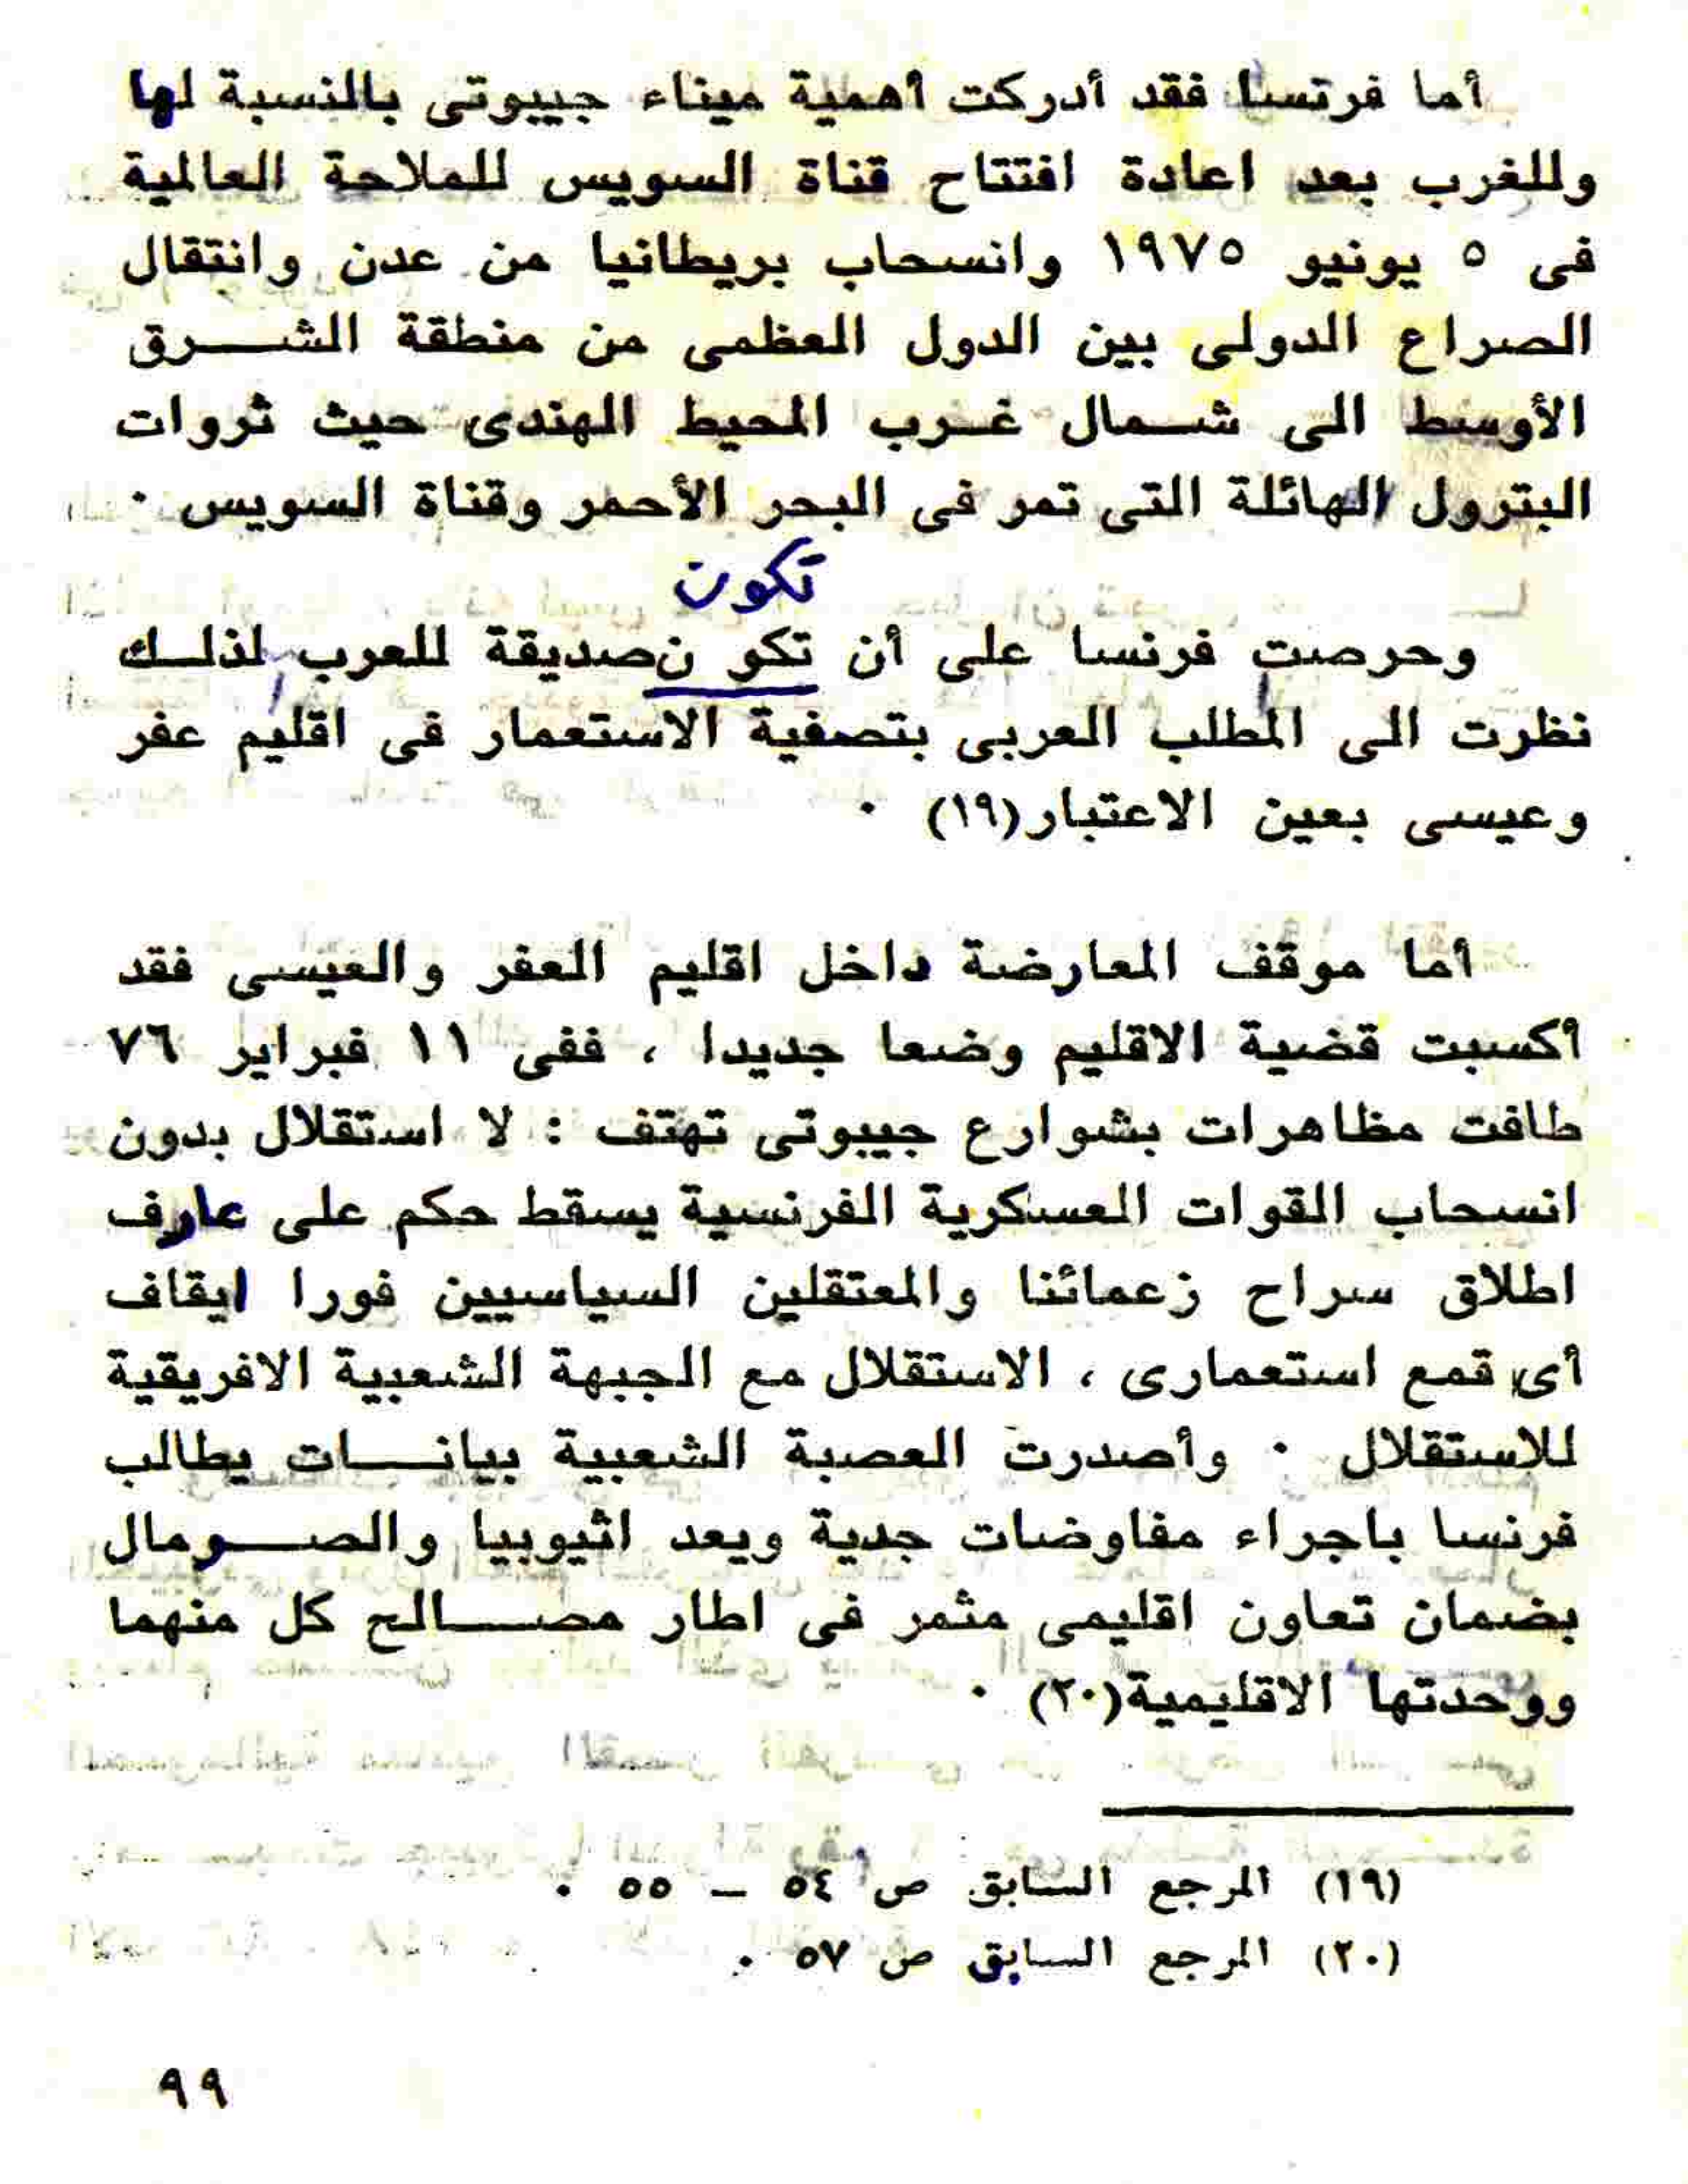 أما فرتسا فقد أدركت أهمية ميناء جيبوتى بالنسبة لها
وللغرب بعد اعادة افتتاح قناة السويس للملاحة العالمية
فى ٥ يونيو ١٩٧٥ وانسحاب بريطانيا من عدن وانتقال
الصراع الدولى بين الدول العظمى من منطقة الشرق
الأوسط الى شمال غرب المحيط الهندى حيث ثروات
البترول الهائلة التى تمر فى البحر الأحمر وقناة السويس ٠
تكون
وحرصت فرنسا على أن تكو نصديقة للعرب لذلك
نظرت الى المطلب العربى بتصفية الاستعمار فى اقليم عفر
وعيسى بعين الاعتبار(١٩) ٠
أما موقف المعارضة داخل اقليم العفر والعيسى فقد
أكسبت قضية الاقليم وضعا جديدا ، ففى ١١ فبراير ٧٦
طافت مظاهرات بشوارع جيبوتى تهتف : لا استقلال بدون
انسحاب القوات العسكرية الفرنسية يسقط حكم على عارف
اطلاق سراح زعمائنا والمعتقلين السياسيين فورا ايقاف
أى قمع استعمارى ، الاستقلال مع الجبهة الشعبية الافريقية
للاستقلال ٠ وأصدرت العصبة الشعبية بيانات يطالب
فرنسا باجراء مفاوضات جدية ويعد اثيوبيا والصومال
بضمان تعاون اقليمى مثمر فى اطار مصالح كل منهما
ووحدتها الاقليمية(٢٠) ٠
(١٩) المرجع السابق ص ٥٤ – ٥٥ ٠
(٢٠) المرجع السابق ص ٥٧ ٠
٩٩